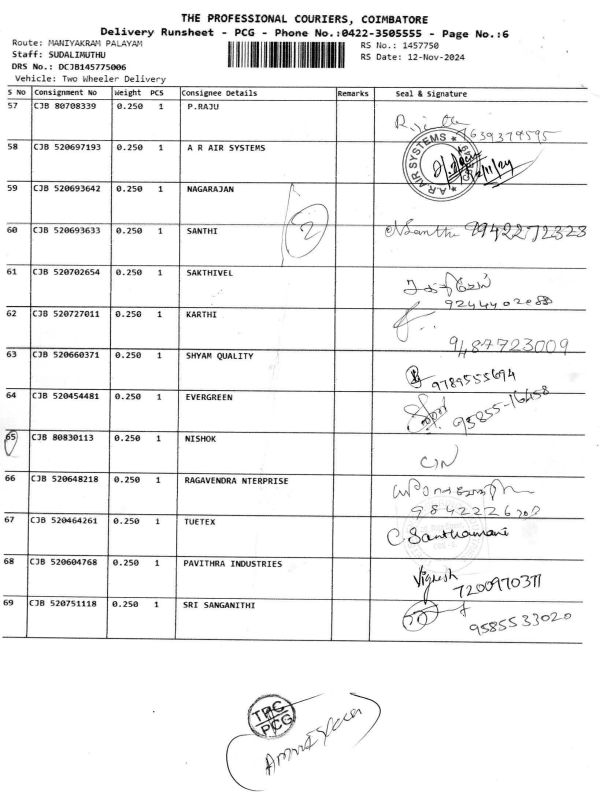 THE PROFESSIONAL COURIERS, COIMBATORE
Delivery Runsheet - PCG - Phone No.:0422-3505555 - Page No.:6
Route: MANIYAKRAM PALAYAM
RS No.: 1457750
Staff: SUDALIMUTHU
RS Date: 12-Nov-2024
DRS No.: DCJB145775006
Vehicle: Two Wheeler Delivery
S No Consignment No Weight PCS Consignee Details Remarks Seal & Signature
57 CJB 80708339 0.250 1 P.RAJU
7639379595
58 CJB 520697193 0.250 1 A R AIR SYSTEMS
A.R AIR SYSTEMS
12/11/24
59 CJB 520693642 0.250 1 NAGARAJAN
2
60 CJB 520693633 0.250 1 SANTHI
N Santhi 9942272323
61 CJB 520702654 0.250 1 SAKTHIVEL
சக்திவேல்
9244402088
62 CJB 520727011 0.250 1 KARTHI
9487723009
63 CJB 520660371 0.250 1 SHYAM QUALITY
9789555694
64 CJB 520454481 0.250 1 EVERGREEN
95855-16458
65 CJB 80830113 0.250 1 NISHOK
66 CJB 520648218 0.250 1 RAGAVENDRA NTERPRISE
67 CJB 520464261 0.250 1 TUETEX
C. Santhamani
68 CJB 520604768 0.250 1 PAVITHRA INDUSTRIES
Vignesh
7200970371
69 CJB 520751118 0.250 1 SRI SANGANITHI
9585533020
TPC
PCG